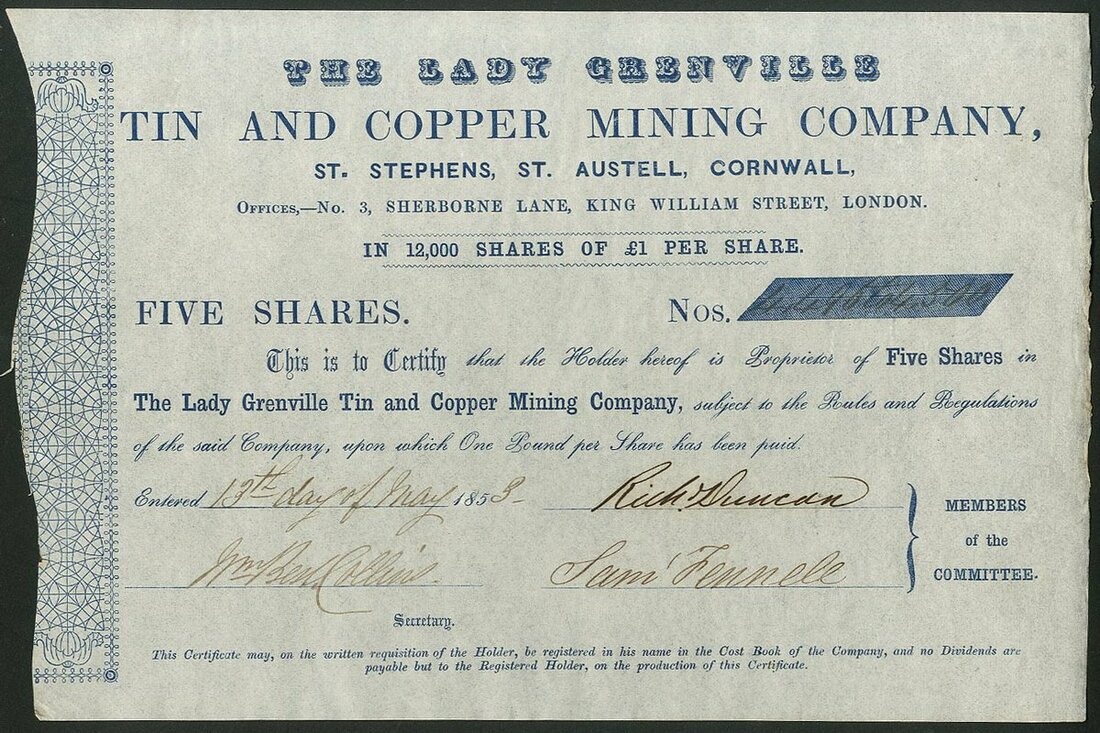 THE LADY GRENVILLE
TIN AND COPPER MINING COMPANY,
ST. STEPHENS, ST. AUSTELL, CORNWALL,
OFFICES,—No. 3, SHERBORNE LANE, KING WILLIAM STREET, LONDON.
IN 12,000 SHARES OF £1 PER SHARE.
FIVE SHARES. Nos.
This is to Certify that the Holder hereof is Proprietor of Five Shares in
The Lady Grenville Tin and Copper Mining Company, subject to the Rules and Regulations
of the said Company, upon which One Pound per Share has been paid.
Entered 13th day of May 1853- Richd Duncan
Wm Ben Collins Saml Fennell
MEMBERS
of the
COMMITTEE.
Secretary.
This Certificate may, on the written requisition of the Holder, be registered in his name in the Cost Book of the Company, and no Dividends are
payable but to the Registered Holder, on the production of this Certificate.